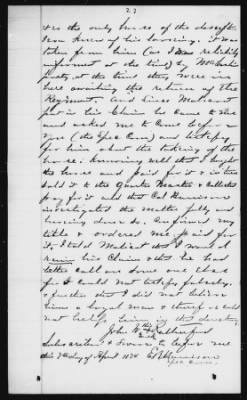 27
was the only horse of the description
knew of his loosing. it was
taken from him (as I was reliably
informed at the time) by
party, at the time they were
here awaiting the return of the
Regiment. and since
put in his claim he came to
and asked me to come before
you (the Spe Com) and testify
for him about the taking of the
horse: knowing well that I bought
the horse and paid for it & in turn
sold it to the Quarter Master & collected
pay for it and that Col Harrison
investigated the matter fully and
having done so confirmed my
title & ordered me paid for
it, I told that it would
ruin his claim & that he had
better call on some one else
for I could not testify falsely.
& further that I did not believe
him a loyal man & therefore could
not help him in this
John his mark Rutherford
Subscribed & Sworn to before me
this day of April 1874
Spe Com.